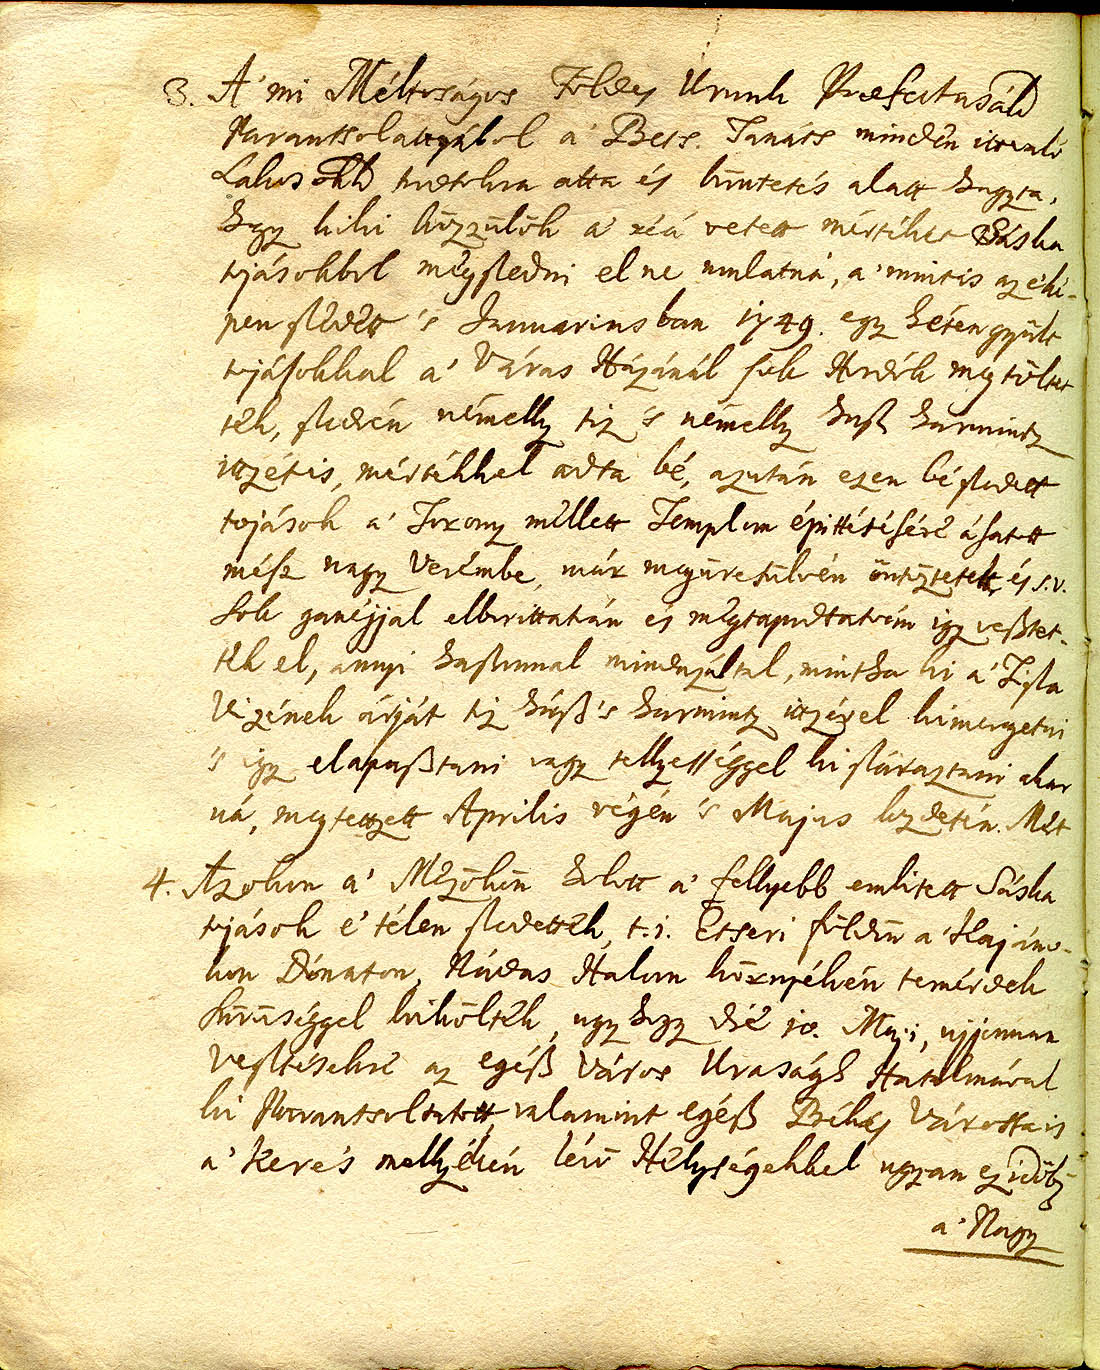 3. A' mi Méltoságos Földes Urunk Praefectusának
Parantsolattyából a' Bets. Tanáts minden itt való
Lakosoknak tudtokra atta és büntetés alatt hagyta,
hogy kiki közzülök a' reá vetett mértéket Sáska
tojásokból mégszedni el ne mulatná, a' mint is az eké-
pen szedett 's Januariusban 1749. egy héten gyült
tojásokkal a' Város Házánál sok Hordók megtöltet-
tek, szedvén némelly tiz 's némelly husz harmintz
ittzét is, mértékkel adta bé, azután ezen bé szedett
tojások a' Torony mellett Templom épittésére ásatott
mész nagy Verembe, már megüresülvén öntöztetett, és s.v.
sok ganéjjal elborittatván és mégtapodtatván igy vesztet-
tek el, annyi haszonnal mindazáltal, mintha ki a' Tisza
Vizének árját tiz húsz 's harmintz ittzével kimeregetni
's igy elapasztani vagy tellyességgel ki száraztani akar
ná, megtettzett Aprilis végén 's Majus kezdetén. Mert
4. Azokon a' Mezőkön hólott a' fellyebb emlitett Sáska
tojások e' télen szedettek, t.i. Etseri földön a' Kaján-
kon Dónáton, Nádas Halom környékén temérdek
sürüséggel kiköltek, ugy hogy die 10. Maji, ujjonnan
vesztésekre az egész Város Uraságh Hatalmával
ki Parantsoltatott, valamint egész Békés Várossa is
a' Kerés mellyékén lévő Helységekkel ugyan ez időb
a' Nagy